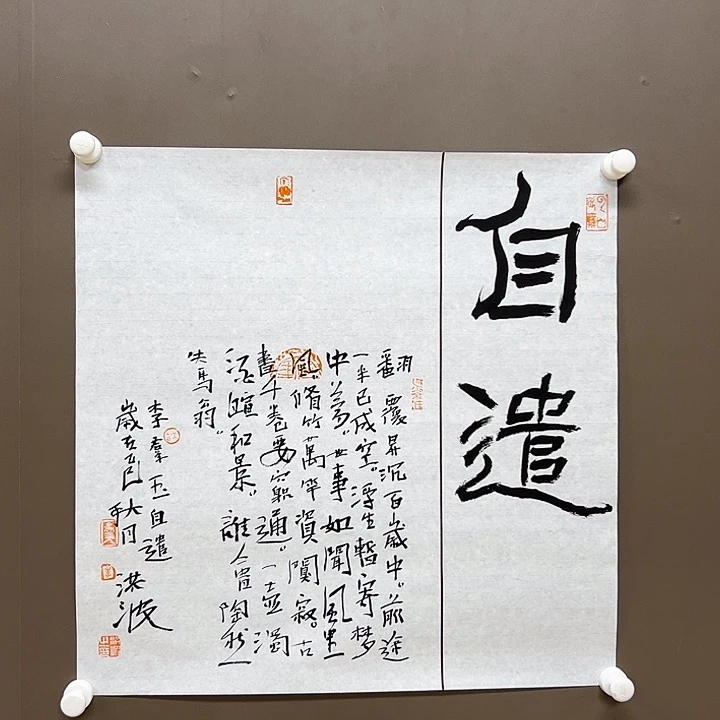 自遣
翻覆昇沉百歲中。前途
一半已成空。浮生暫寄梦
中夢。世事如聞風里
風。脩竹萬竿資闃寂。古
書千卷要窮通。一壺濁
酒暄和景。誰會陶然
失馬翁。
李羣玉自遣
歲在乙巳秋月 洪波